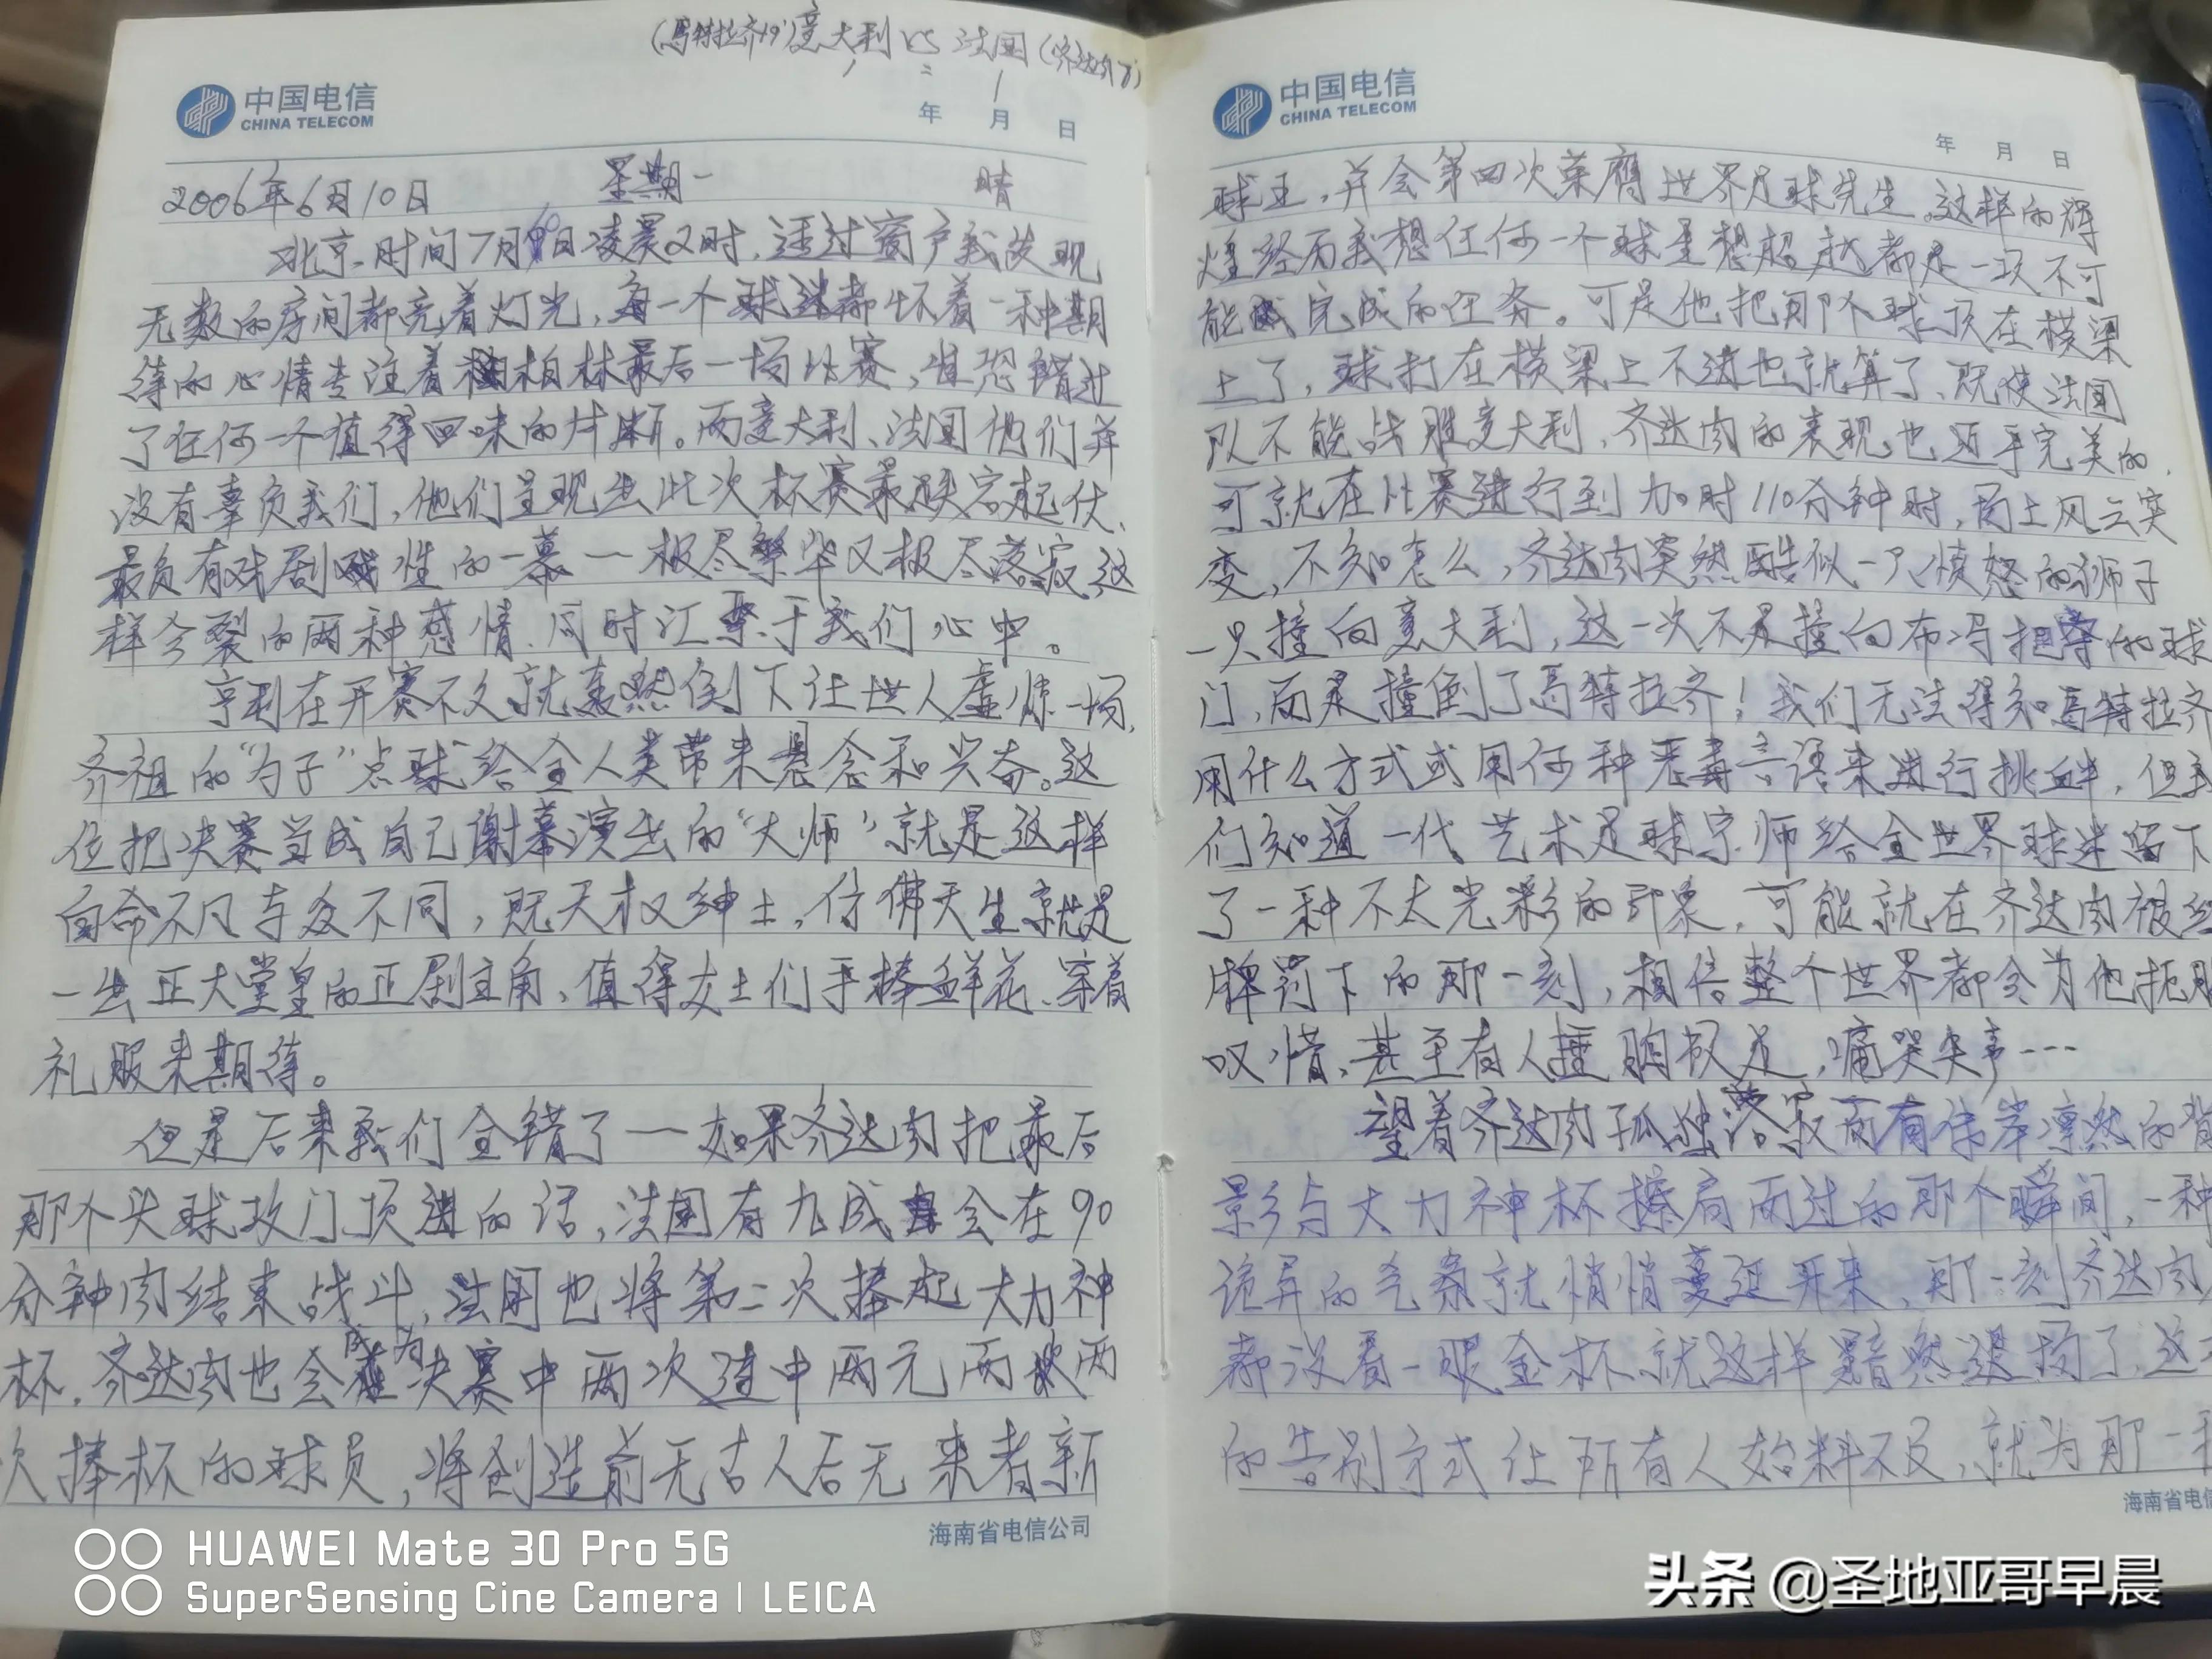 (马特拉齐19')意大利 VS 法国(齐达内7')
1 = 1
中国电信
CHINA TELECOM
年 月 日
2006年6月10日 星期一 晴
北京时间7月10日凌晨2时,透过窗户我发现
无数的房间都亮着灯光,每一个球迷都怀着一种期
待的心情专注着柏林最后一场比赛,惟恐错过
了任何一个值得回味的片断。而意大利、法国他们并
没有辜负我们,他们呈现出此次杯赛最跌宕起伏、
最负有戏剧性的一幕一极尽繁华又极尽落寂,这
样分裂的两种感情、同时汇聚于我们心中。
亨利在开赛不久就轰然倒下让世人虚惊一场,
齐祖的“勺子”点球给全人类带来悬念和兴奋。这
位把决赛当成自己谢幕演出的“大师”就是这样
自命不凡与众不同,既天才又绅士,仿佛天生就是
一出正大堂皇的正剧主角、值得女士们手捧鲜花、穿着
礼服来期待。
但是后来我们全错了一如果齐达内把最后
那个头球攻门顶进的话,法国有九成会在90
分钟内结束战斗,法国也将第二次捧起大力神
杯.齐达内也会成为决赛中两次连中两元两次两
次捧杯的球员,将创造前无古人后无来者新
海南省电信公司
中国电信
CHINA TELECOM
年 月 日
球王,并会第四次荣膺世界足球先生.这样的辉
煌经历我想任何一个球星想超越都是一次不可
能完成的任务。可是他把那个球顶在横梁
上了,球打在横梁上不进也就算了、既使法国
队不能战胜意大利,齐达内的表现也近乎完美的.
可就在比赛进行到加时110分钟时,场上风云突
变,不知怎么,齐达内突然酷似一只愤怒的狮子
一只撞向意大利,这一次不是撞向布冯把守的球
门,而是撞倒了马特拉齐!我们无法得知马特拉齐
用什么方式或用何种恶毒言语来进行挑衅,但我
们知道一代艺术足球宗师给全世界球迷留下
了一种不太光彩的印象,可能就在齐达内被红
牌罚下的那一刻,相信整个世界都会为他扼腕
叹惜、甚至有人捶胸顿足,痛哭失声…
望着齐达内孤独落寂而有伟岸凛然的背
影与大力神杯擦肩而过的那个瞬间,一种
诡异的气氛就悄悄蔓延开来,那一刻齐达内
都没看一眼金杯就这样黯然退场了,这
的告别方式让所有人始料不及,就为那一
海南省电信
HUAWEI Mate 30 Pro 5G
SuperSensing Cine Camera | LEICA
头条 @圣地亚哥早晨